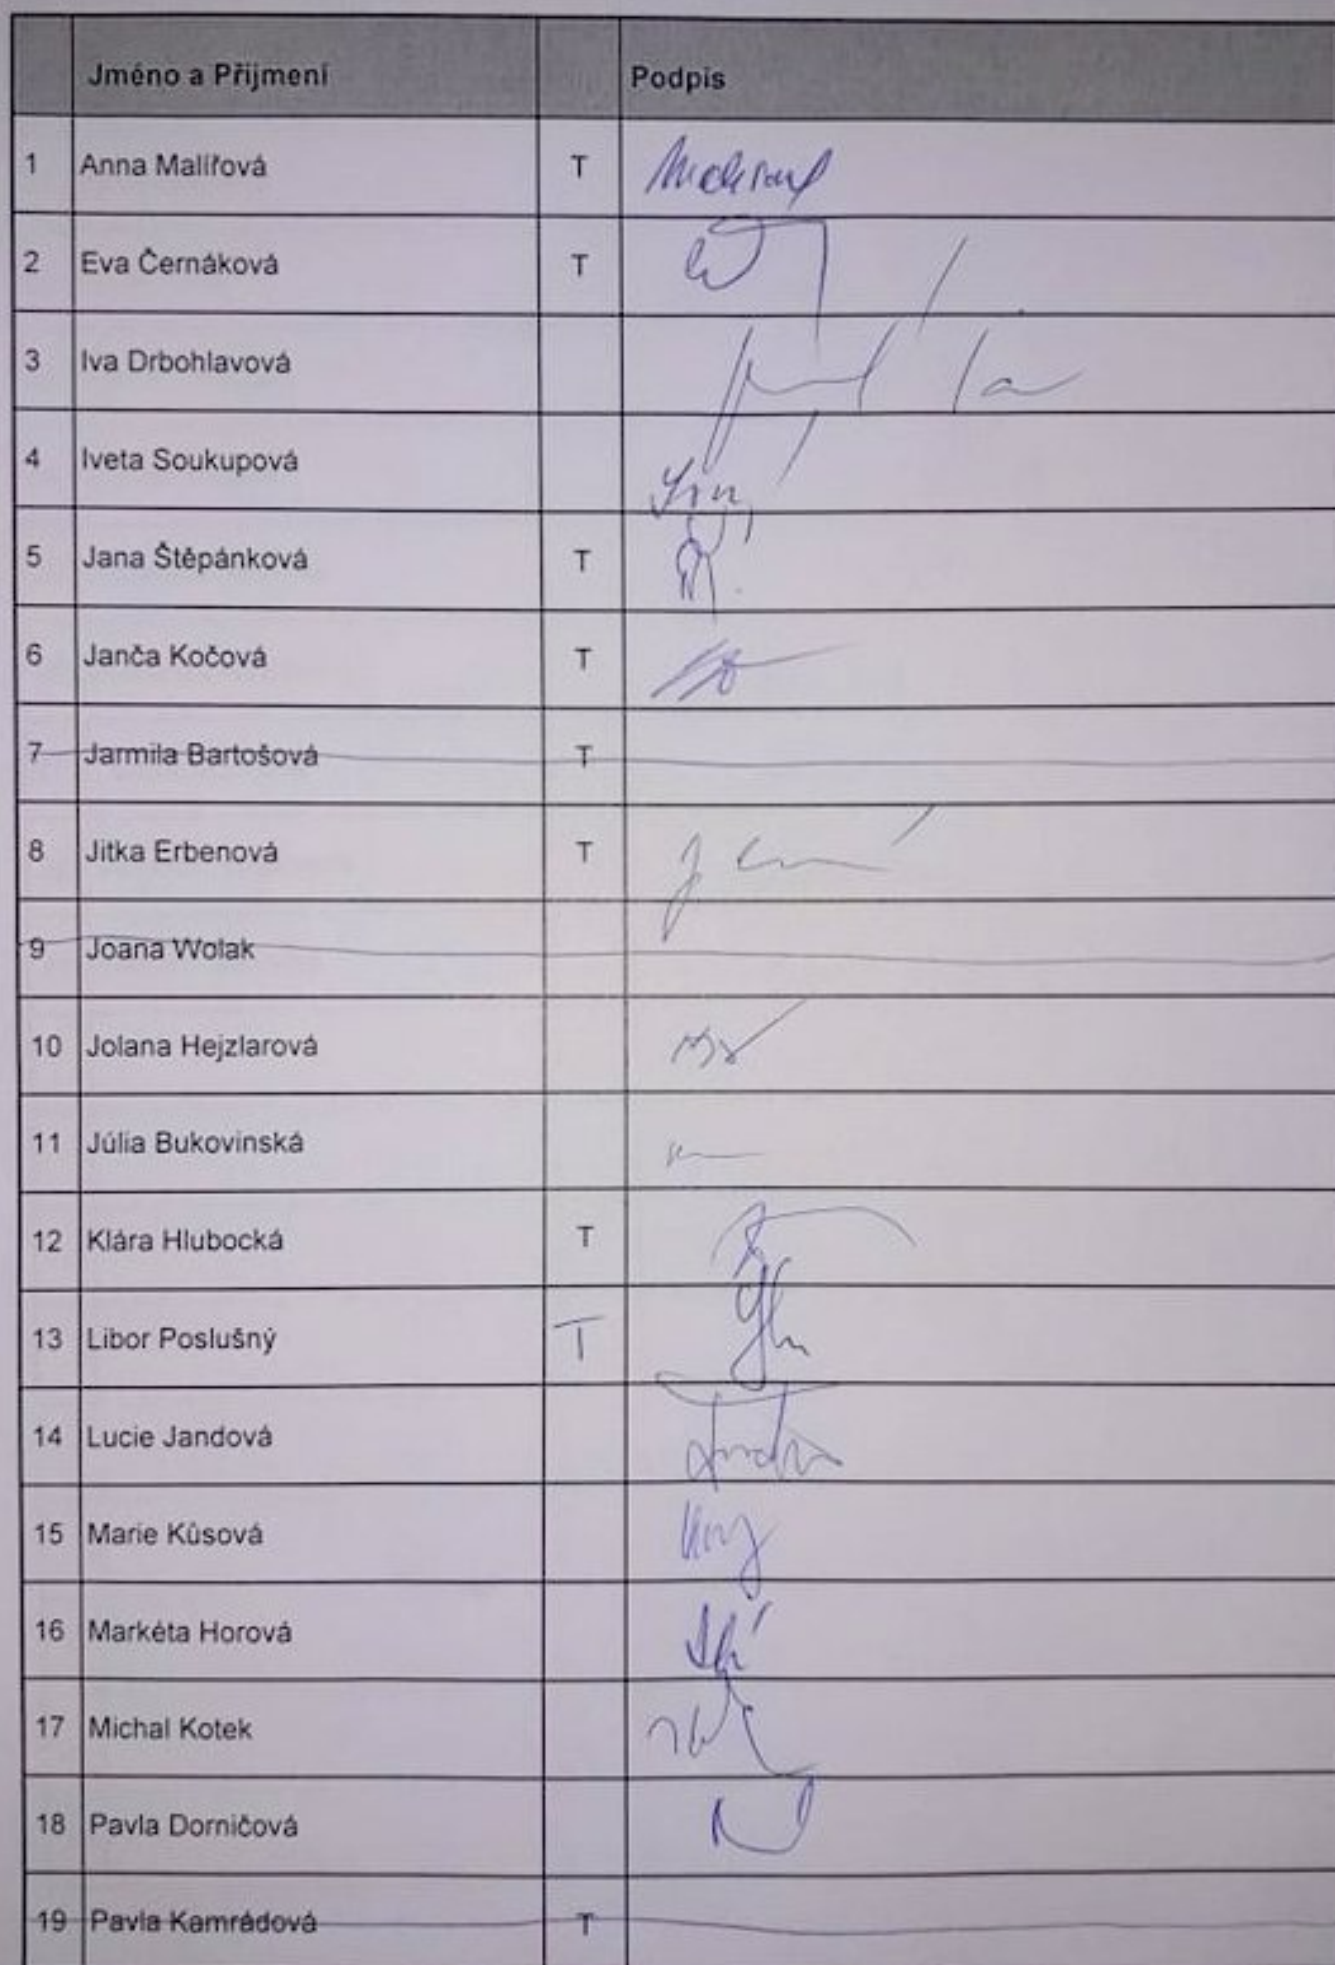 Jméno a Příjmení Podpis
1 Anna Malířová T
2 Eva Černáková T
3 Iva Drbohlavová
4 Iveta Soukupová
5 Jana Štěpánková T
6 Janča Kočová T
7 Jarmila Bartošová T
8 Jitka Erbenová T
9 Joana Wolak
10 Jolana Hejzlarová
11 Júlia Bukovinská
12 Klára Hlubocká T
13 Libor Poslušný T
14 Lucie Jandová
15 Marie Kůsová
16 Markéta Horová
17 Michal Kotek
18 Pavla Dorničová
19 Pavla Kamrádová T